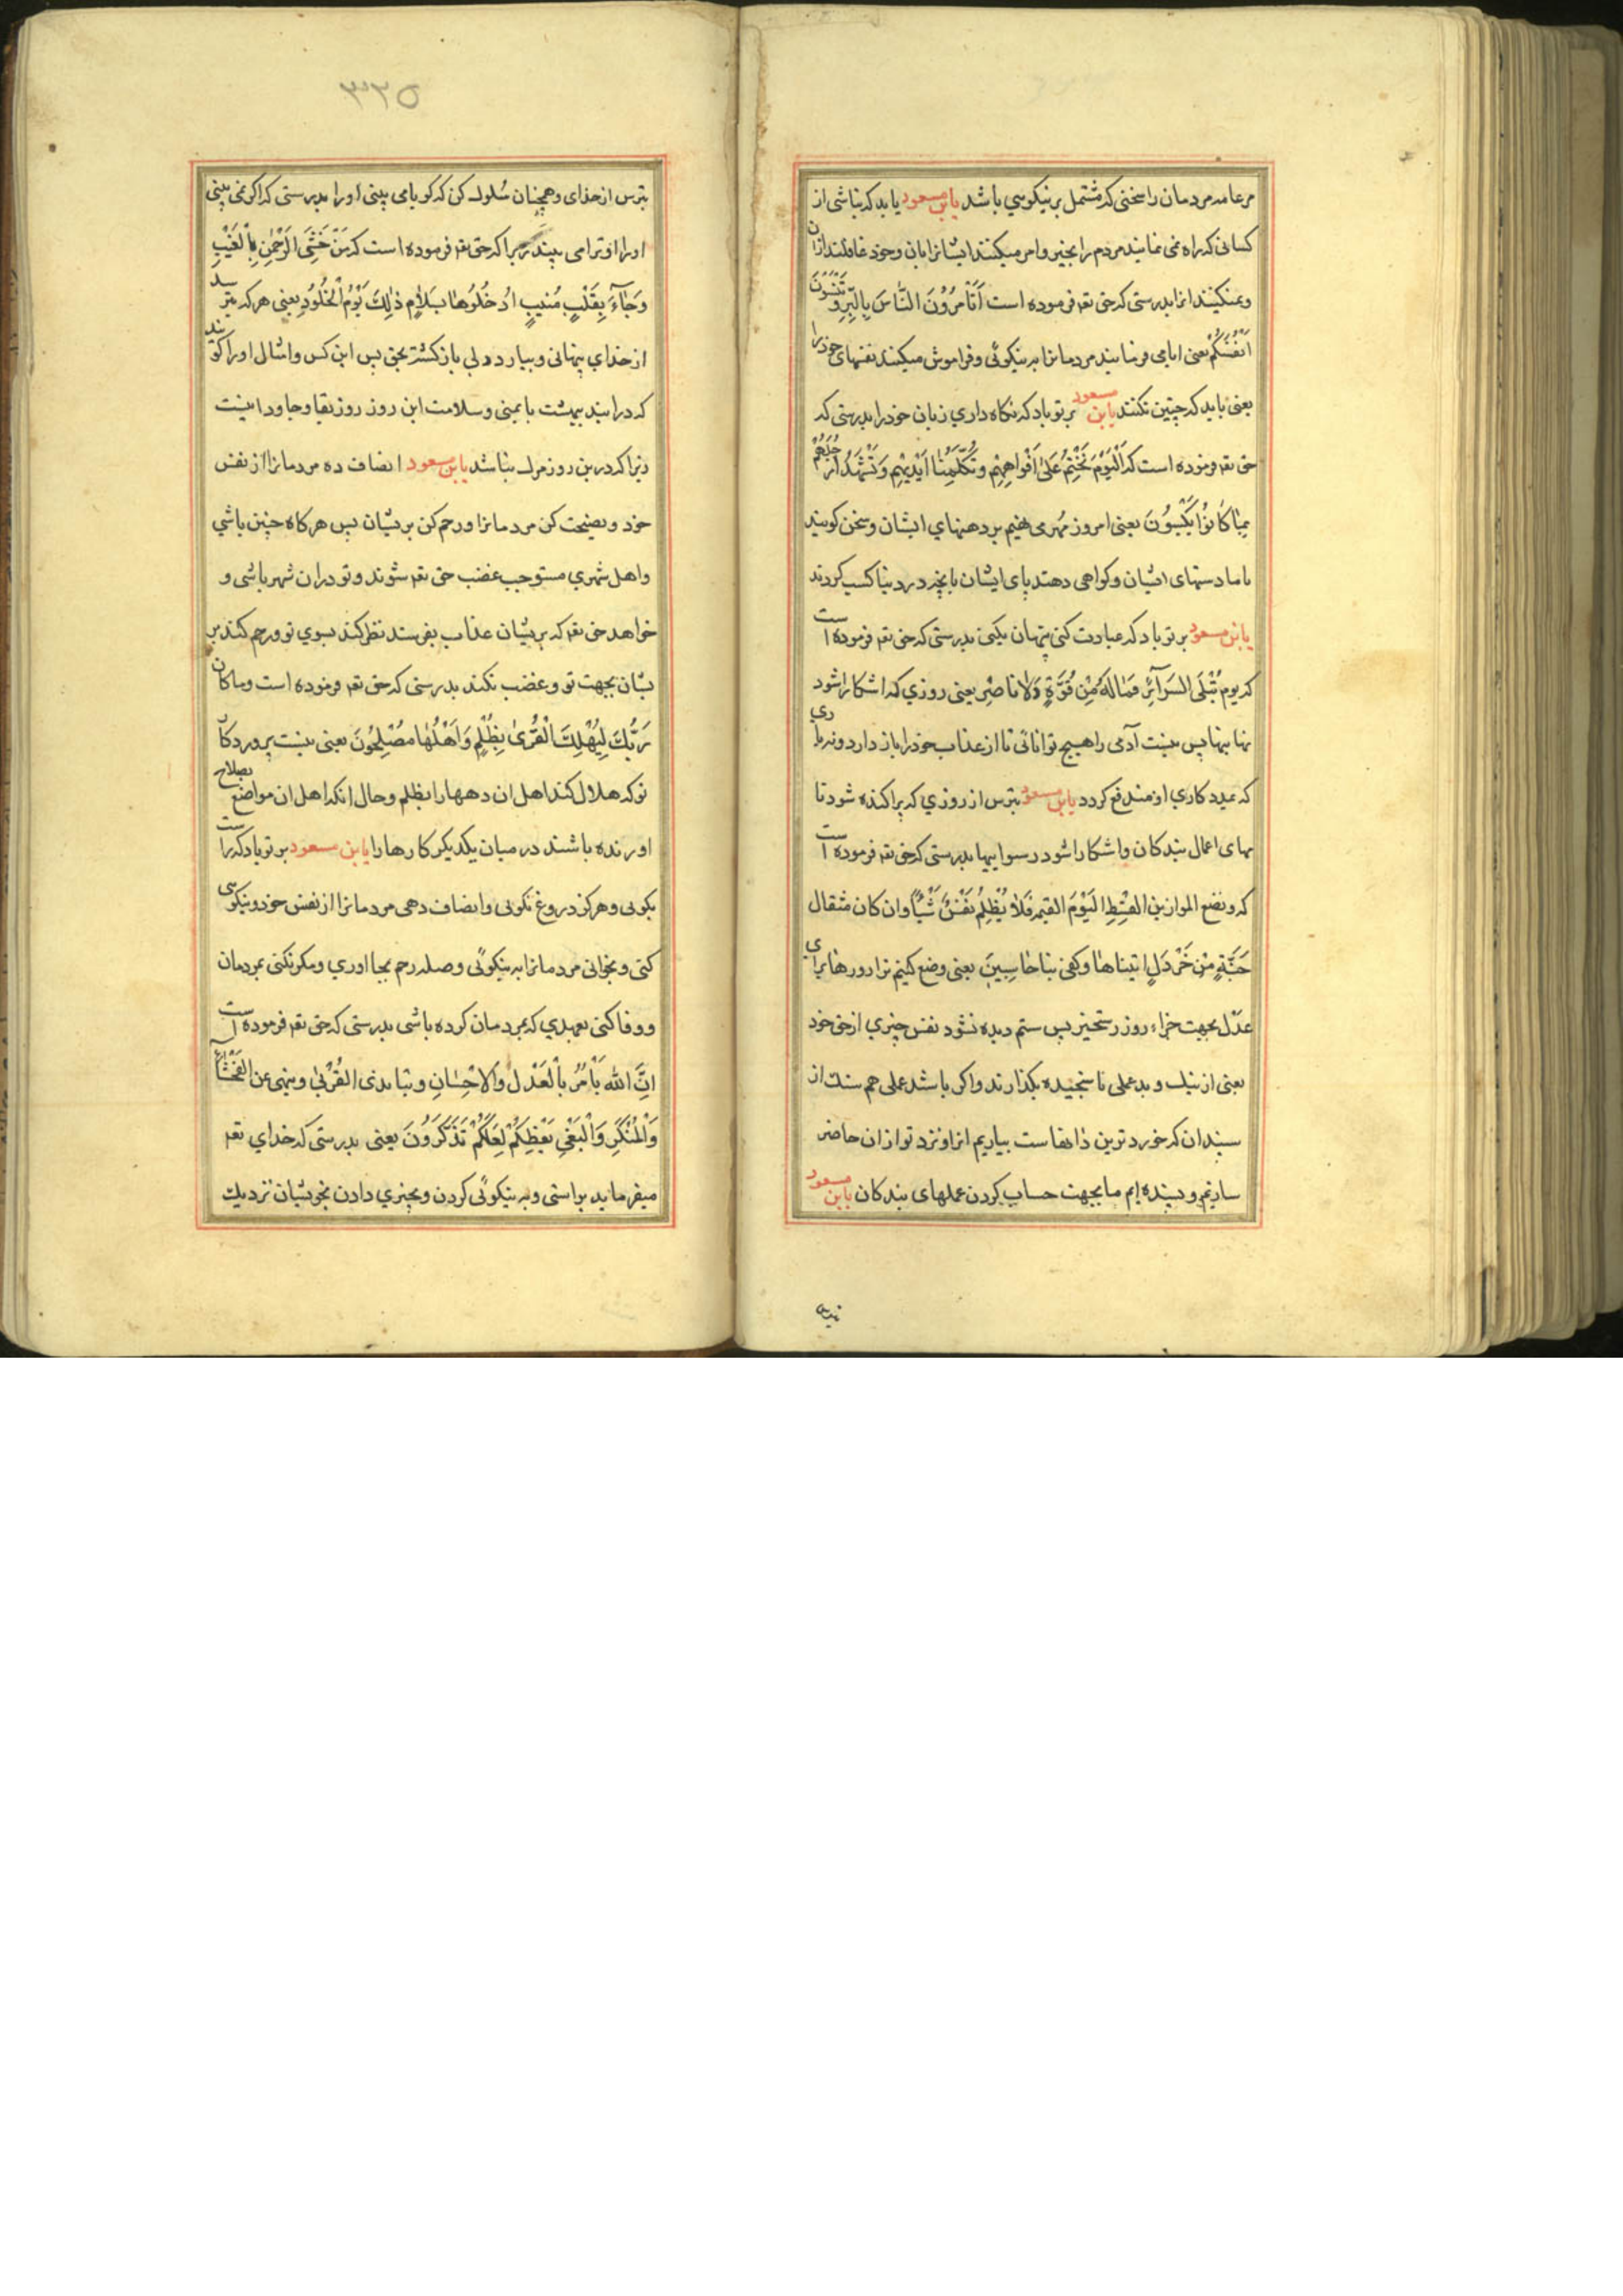 مر عامه مردمان را سخنی که مشتمل بر نیکویی باشد یا بن مسعود باید که نباشی از
کسانی که راه می نمایند مردم را بخیر و امر میکنند ایشانرا بان و خود غافلند ازان
و نمیکنند انرا بدرستی که حق تعه فرموده است اَتَأمُرُونَ النَّاسَ بِالبِرِّ وَتَنْسَوْنَ
اَنْفُسَكُمْ یعنی ایا می فرمایند مردمانرا به نیکوئی و فراموش میکنند نفسهای خود را
یعنی باید که چنین نکنند یا بن مسعود بر تو باد که نکاه داری زبان خود را بدرستی که
حق تعه فرموده است که اَلْيَوْمَ نَخْتِمُ عَلىٰ اَفْوَاهِهِمْ وَتُكَلِّمُنا اَيْدِيهِمْ وَتَشْهَدُ اَرْجُلُهُمْ
بِمٰا كٰانُوا يَكْسِبُونَ یعنی امروز مهر می نهیم بر دهنهای ایشان و سخن کویند
با ما دستهای ایشان و کواهی دهند پای ایشان بانچه در دنیا کسب کردند
یا بن مسعود بر تو باد که عبادت کنی پنهان یکی بدرستی که حق تعه فرموده است
که يوم تُبْلَى السَّرَآئِرُ فَمٰا لَهُ مِنْ قُوَّةٍ وَلاٰ ناصِرٍ یعنی روزی که اشکارا شود
نهانیها پس نیست آدمی را هیچ توانائی تا از عذاب خود را باز دارد و نه یاری
که بمدد کاری او مندفع کردد یا بن مسعود بترس از روزی که پراکنده شود نا
مهای اعمال بندکان و اشکارا شود رسواییها بدرستی که حق تعه فرموده است
که و نضع الموازین القِسْطِ لیَوْمَ القیمه فَلاٰ يُظْلَمُ نَفْسٌ شَيْئًا وان كان مثقال
حَبَّةٍ مِنْ خَرْدَلٍ اتیناها وکفی بنا حاسِبِینَ یعنی وضع کنیم ترازورهای
عدل بجهت جزاء روز رستخیز پس ستم دیده نشود نفس چیزی از حق خود
یعنی از نیک و بد عملی نا سنجیده بکذارند و اکر باشد عملی هم سنک از
سپندان که خورد ترین دانهاست بیاریم انرا و نزد توازان حاضر
سازیم و بسنده ایم ما بجهت حساب کردن عملهای بندکان یا بن مسعود
۳۳۵
بترس از خدای و همچنان سُلوک کن که کویا می بینی او را بدرستی که اکر نمی بینی
او را او ترا می بیند زیرا که حق تعه فرموده است که مَنْ خَشِيَ الرَّحْمٰنِ بِالْغَيْبِ
وَجٰآءَ بِقَلْبٍ مُنِيبٍ ادُخُلُوهٰا بِسَلاٰمٍ ذٰلِكَ يَوْمُ الْخُلُودِ یعنی هر که بترسد
از خدای پنهانی و بیارد دلی باز کشته بحق پس این کس و امثال او را کویند
که درایید ببهشت با یمنی و سلامت این روز روز بقا و جاودانیست
زیرا که درین روز مرک نباشد یا بن مسعود انصاف ده مردمانرا از نفس
خود و نصیحت کن مردمانرا و رحم کن بریشان پس هر کاه چنین باشی
و اهل شهری مستوجب غضب حق تعه شوند و تو دران شهر باشی و
خواهد حق تعه که بریشان عذاب بفرستد نظر کند بسوی تو و رحم کند بر
یشان بجهت تو و غضب نکند بدرستی که حق تعه فرموده است وماکان
رَبُّكَ لِيُهْلِكَ الْقُرىٰ بِظُلْمٍ وَاَهْلُهٰا مُصْلِحُونَ یعنی نیست پروردکار
تو که هلاک کند اهل ان دهها را بظلم و حال انکه اهل ان مواضع بصلاح
اورنده باشند در میان یکدیکر کارها را یا بن مسعود بر تو باد که راست
بکوئی و هرکز دروغ نکوئی و انصاف دهی مردمانرا از نفس خود و نیکوئی
کنی و بخوانی مردمانرا به نیکوئی و صله رحم بجا اوری و مکر نکنی بمردمان
و وفا کنی بعهدی که بمردمان کرده باشی بدرستی که حق تعه فرموده است
اِنَّ الله يَأْمُرُ بِالْعَدْلِ وَالاحْسٰانِ وَايتاءِ ذى القُرْبىٰ وينهى عن الفَحْشٰآءِ
وَالْمُنْكَرِ وَالْبَغْىِ يَعْظِكُمْ لَعَلَّكُمْ تَذَكَّرُونَ یعنی بدرستی که خدای تعه
میفرماید براستی و به نیکوئی کردن و بچیزی دادن بخویشان نزدیک